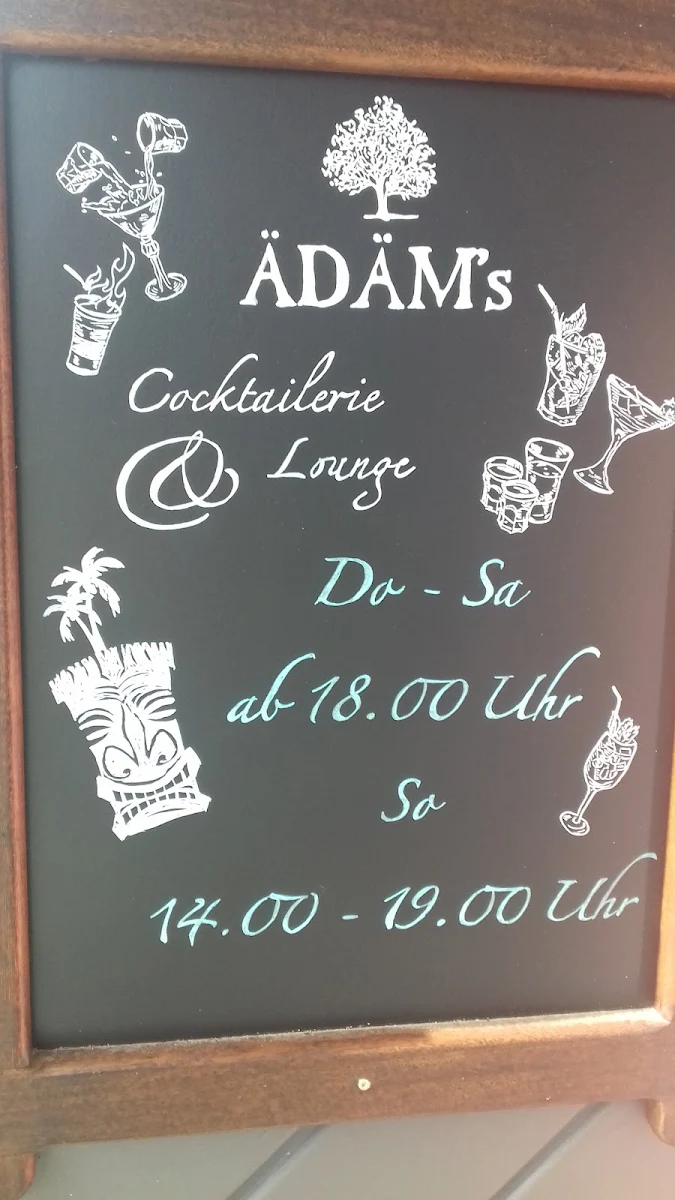 ÄDÄM's
Cocktailerie
& Lounge
Do - Sa
ab 18.00 Uhr
So
14.00 - 19.00 Uhr